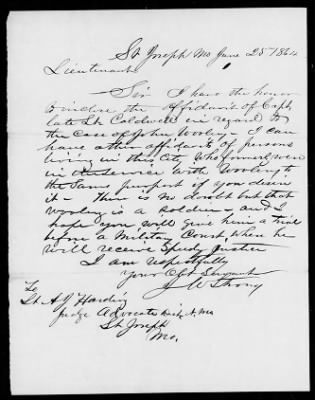 St Joseph Mo June 25 1864
Lieutenant
Sir I have the honor
to inclose the Affidavit of Capt
late Lt Caldwell in regard to
the case of John Wooling - I can
have other affidavits of persons
living in this City who were
in the service with Wooling to
the same purport if you desire
it - There is no doubt but that
Wooling is a soldier - and I
hope you will give him a trial
before a Military Court where he
will receive Speedy justice
I am respectfully
Your Obt Servant
J W Strong
To
Lt A J Harding
Judge Advocate N. Mo
St Joseph
Mo.